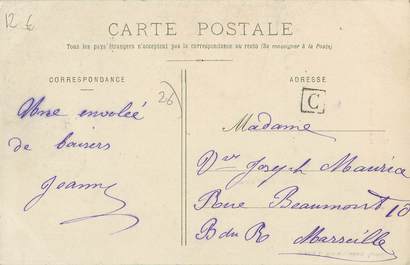 12 €
CARTE POSTALE
Tous les pays étrangers n'acceptent pas la correspondance au recto (Se renseigner à la Poste)
CORRESPONDANCE
Une envolée
de baisers
Jeanne
26
ADRESSE
C
Madame
Vve Joseph Maurice
Rue Beaumont 18
B du R Marseille